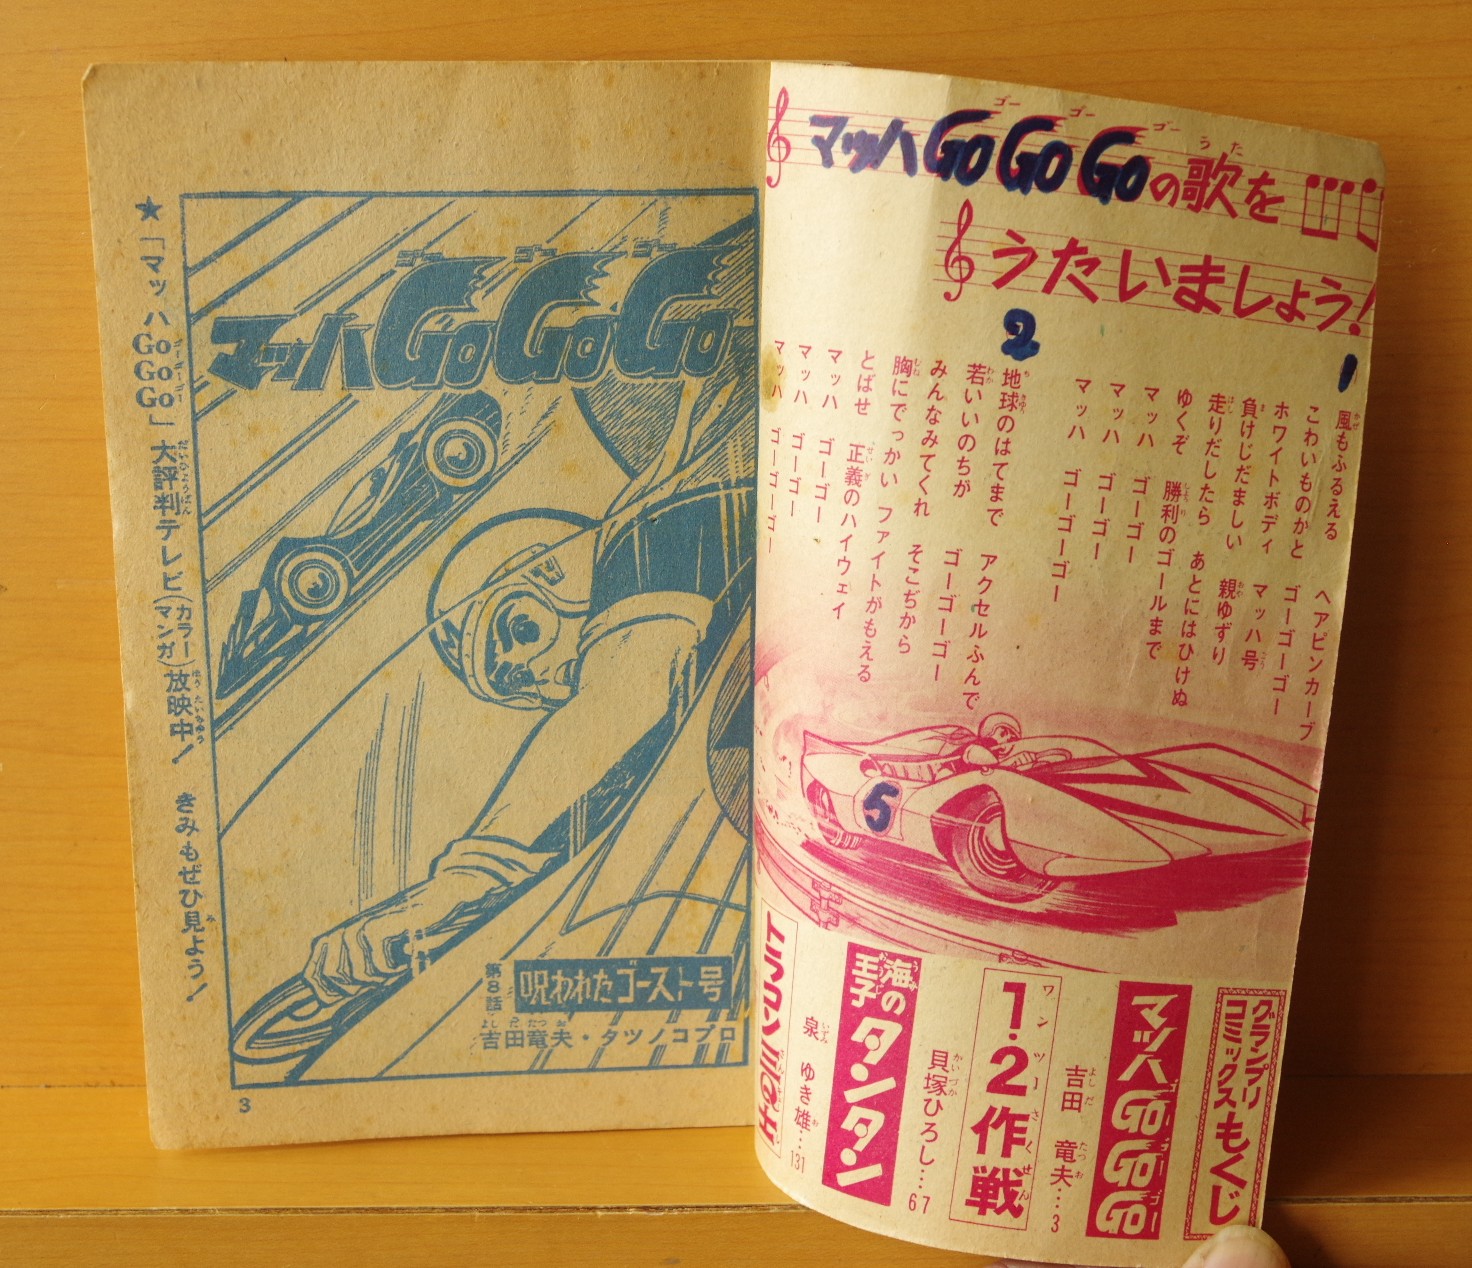 マッハGoGoGoの歌を
うたいましょう!
1
風もふるえる ヘアピンカーブ
こわいものかと ゴーゴーゴー
ホワイトボディ マッハ号
負けじだましい 親ゆずり
走りだしたら あとにはひけぬ
ゆくぞ 勝利のゴールまで
マッハ ゴーゴー
マッハ ゴーゴー
マッハ ゴーゴーゴー
2
地球のはてまで アクセルふんで
若いいのちが ゴーゴーゴー
みんなみてくれ そこぢから
胸にでっかい ファイトがもえる
とばせ 正義のハイウェイ
マッハ ゴーゴー
マッハ ゴーゴー
マッハ ゴーゴーゴー
5
グランプリ
コミックス もくじ
マッハGoGoGo
吉田 竜夫…3
1・2作戦
貝塚ひろし…67
海の王子タンタン
泉 ゆき雄…131
マッハGoGoGo
第8話
呪われたゴースト号
吉田竜夫・タツノコプロ
★「マッハGoGoGo」大評判テレビ(カラーマンガ)放映中! きみもぜひ見よう!
3